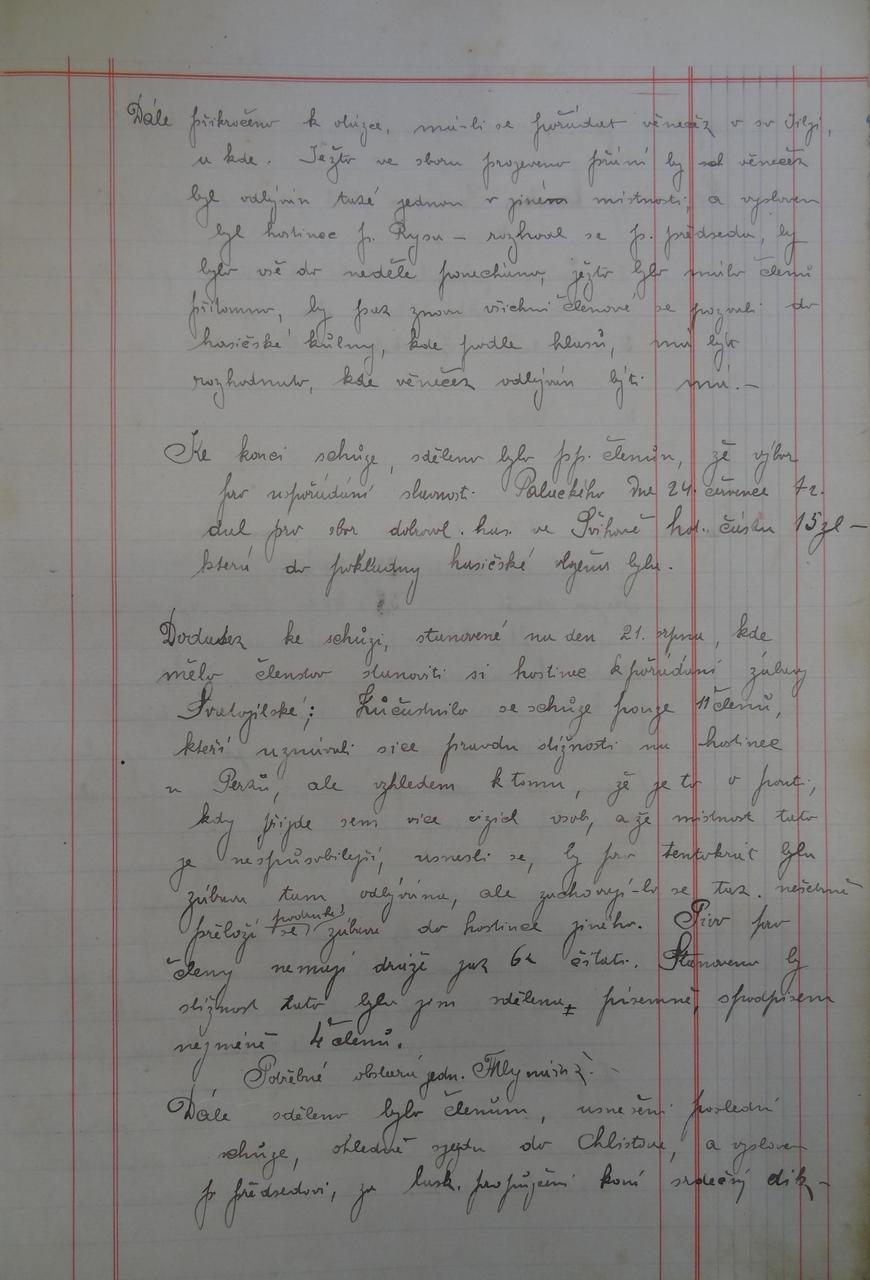 Dále přikročeno k otázce, má-li se pořádat věneček o sv Jiljí,
a kde. Ježto ve sboru projeveno přání by věneček
byl odbýván také jednou v jiné místnosti, a vysloven
byl hostinec p. Rysa – rozhodl se p. předseda, by
bylo vše do neděle ponecháno, ježto bylo málo členů
přítomno, by pak znova všichni členové se pozvali do
hasičské kůlny, kde podle hlasů, má býti
rozhodnuto, kde věneček odbýván býti má.–
Ke konci schůze, sděleno bylo pp. členům, že výbor
pro uspořádání slavnosti Palackého dne 24. července t.r.
dal pro sbor dobrovol. has. ve Švihově hot. částku 15 zl –
která do pokladny hasičské vložena byla.
Dodatek ke schůzi, stanovené na den 21. srpna, kde
mělo členstvo stanoviti si hostinec k pořádání zábavy
Svatojilské; Zůčastnilo se schůze pouze 11 členů,
kteří uznávali sice pravdu stížnosti na hostinec
u Perků, ale vzhledem k tomu, že je to o pouti,
kdy přijde sem více cizích osob, a že místnost tato
je nejspůsobilejší, usnesli se, by pro tentokrát byla
zábava tam odbývána, ale zachovají-li se tak nešetrně
přeloží se podruhé zábava do hostince jiného. Pivo pro
členy nemají dráže jak 6k čítati. Stanoveno by
stížnost tato byla jim sdělena písemně, s podpisem
nejméně 4 členů.
Potřebné obstará jedn. Mlynařík. –
Dále sděleno bylo členům, usnešení poslední
schůze, ohledně sjezdu do Chlistova, a vysloven
p. předsedovi, za lask. propůjčení koní srdečný dík –